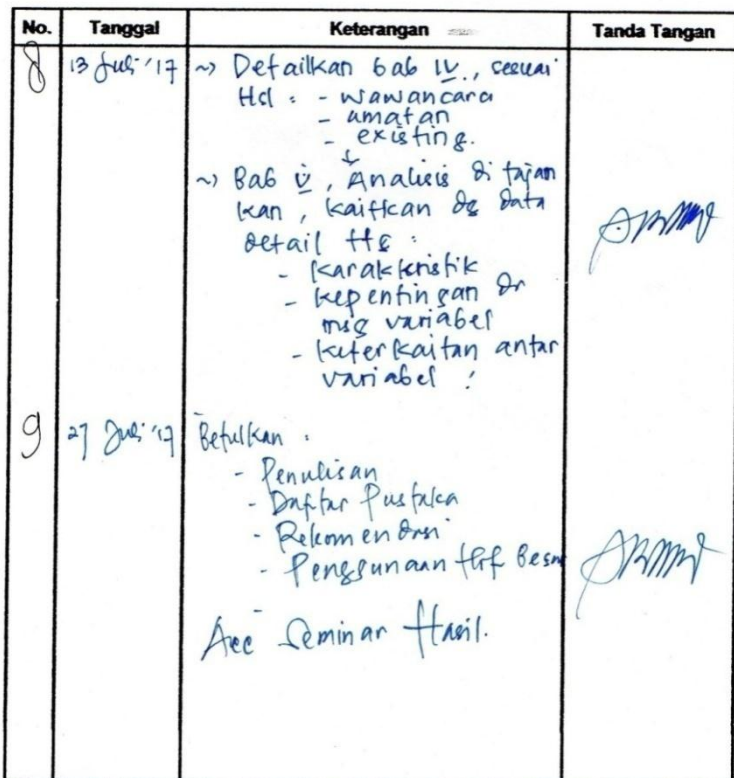 No. Tanggal Keterangan Tanda Tangan
8 13 Juli '17 ~> Detailkan bab IV., sesuai
Hsl : - wawancara
- amatan
- existing.
~> Bab V, Analisis di tajam
kan, kaitkan dg data
detail ttg :
- karakteristik
- kepentingan dr
msg variabel
- keterkaitan antar
variabel !
9 27 Juli '17 Betulkan :
- Penulisan
- Daftar Pustaka
- Rekomendasi
- Penggunaan Hrf Besar
-
Acc Seminar Hasil.